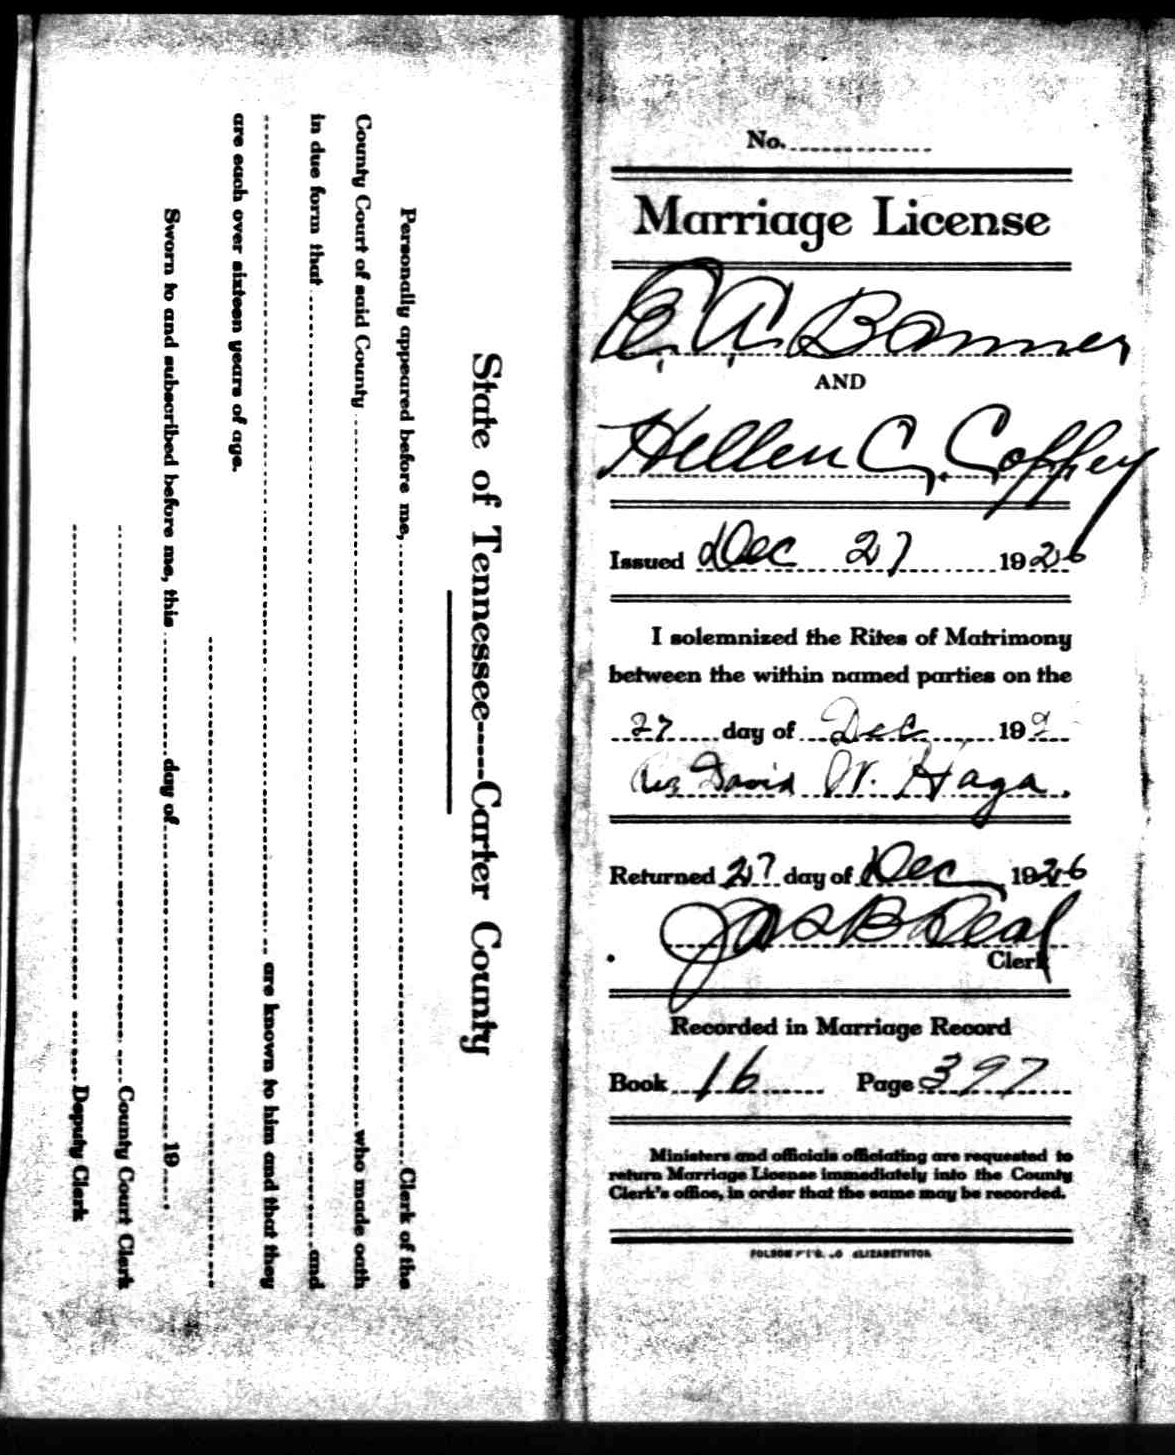 State of Tennessee----Carter County
Personally appeared before me, Clerk of the
County Court of said County who made oath
in due form that and
are known to him and that they
are each over sixteen years of age.
Sworn to and subscribed before me, this day of 19
County Court Clerk
Deputy Clerk
No.
Marriage License
E. A. Banner
AND
Hellen C. Coffey
Issued Dec 27 1926
I solemnized the Rites of Matrimony
between the within named parties on the
27 day of Dec 192
Rev David W. Haga.
Returned 27 day of Dec 1926
Jas B Deal
Clerk
Recorded in Marriage Record
Book 16 Page 397
Ministers and officials officiating are requested to
return Marriage License immediately into the County
Clerk's office, in order that the same may be recorded.
FOLSOM ELIZABETHTON